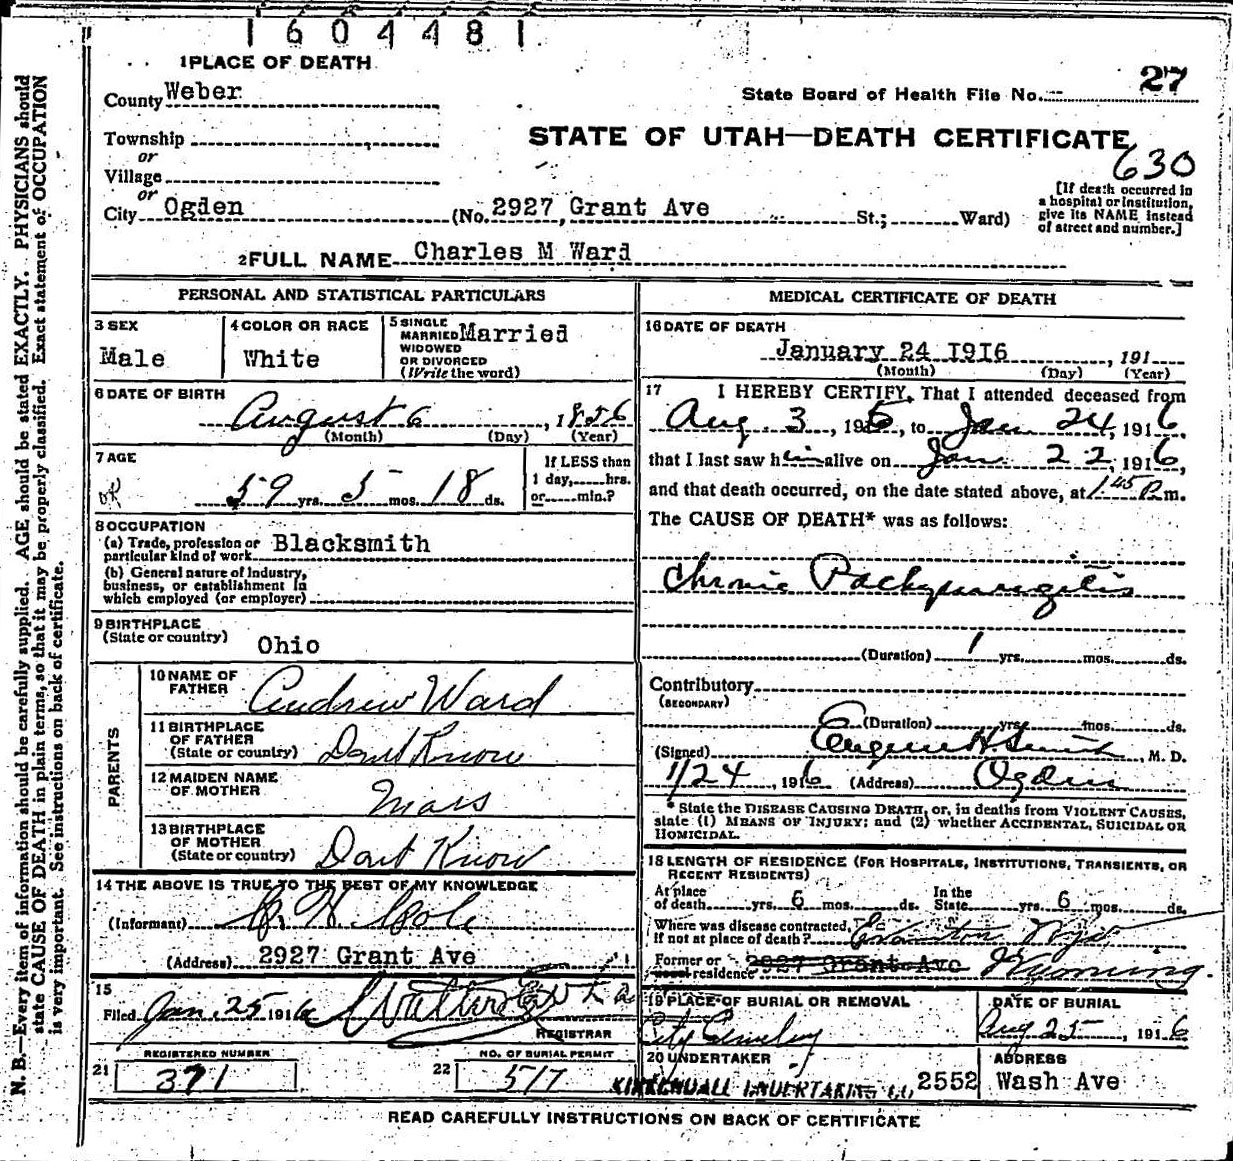 1604481
1 PLACE OF DEATH
County Weber
State Board of Health File No. 27
STATE OF UTAH—DEATH CERTIFICATE
630
Township
or
Village
or
City Ogden (No. 2927 Grant Ave St.; Ward)
[If death occurred in
a hospital or institution,
give its NAME instead
of street and number.]
2 FULL NAME Charles M Ward
PERSONAL AND STATISTICAL PARTICULARS
3 SEX
Male
4 COLOR OR RACE
White
5 SINGLE
MARRIED Married
WIDOWED
OR DIVORCED
(Write the word)
6 DATE OF BIRTH
August 6, 1856
(Month) (Day) (Year)
7 AGE
59 yrs. 5 mos. 18 ds.
If LESS than
1 day, hrs.
or min.?
8 OCCUPATION
(a) Trade, profession or
particular kind of work Blacksmith
(b) General nature of Industry,
business, or establishment in
which employed (or employer)
9 BIRTHPLACE
(State or country) Ohio
PARENTS
10 NAME OF
FATHER Andrew Ward
11 BIRTHPLACE
OF FATHER
(State or country) Dont Know
12 MAIDEN NAME
OF MOTHER Mars
13 BIRTHPLACE
OF MOTHER
(State or country) Dont Know
14 THE ABOVE IS TRUE TO THE BEST OF MY KNOWLEDGE
(Informant)
(Address) 2927 Grant Ave
15
Filed Jan. 25 1916
REGISTRAR
REGISTERED NUMBER
21 371
NO. OF BURIAL PERMIT
22 517
MEDICAL CERTIFICATE OF DEATH
16 DATE OF DEATH
January 24 1916, 191
(Month) (Day) (Year)
17 I HEREBY CERTIFY, That I attended deceased from
Aug. 3, 1915, to Jan 24, 1916,
that I last saw him alive on Jan 22, 1916,
and that death occurred, on the date stated above, at 1.45 P.m.
The CAUSE OF DEATH* was as follows:
Chronic
(Duration) 1 yrs. mos. ds.
Contributory
(SECONDARY)
(Duration) yrs. mos. ds.
(Signed) Eugene H. Smith, M. D.
1/24, 1916 (Address) Ogden
* State the DISEASE CAUSING DEATH, or, in deaths from VIOLENT CAUSES,
state (1) MEANS OF INJURY; and (2) whether ACCIDENTAL, SUICIDAL OR
HOMICIDAL.
18 LENGTH OF RESIDENCE (FOR HOSPITALS, INSTITUTIONS, TRANSIENTS, OR
RECENT RESIDENTS)
At place
of death yrs. 6 mos. ds.
In the
State yrs. 6 mos. ds.
Where was disease contracted,
if not at place of death? Evanston Wyo
Former or
usual residence 2927 Grant Ave Wyoming.
19 PLACE OF BURIAL OR REMOVAL
City Cemetery
DATE OF BURIAL
Aug 25, 1916
20 UNDERTAKER
KIRKENDALL UNDERTAKING CO 2552
ADDRESS
Wash Ave
READ CAREFULLY INSTRUCTIONS ON BACK OF CERTIFICATE
N. B.—Every item of information should be carefully supplied. AGE should be stated EXACTLY. PHYSICIANS should
state CAUSE OF DEATH in plain terms, so that it may be properly classified. Exact statement of OCCUPATION
is very important. See instructions on back of certificate.